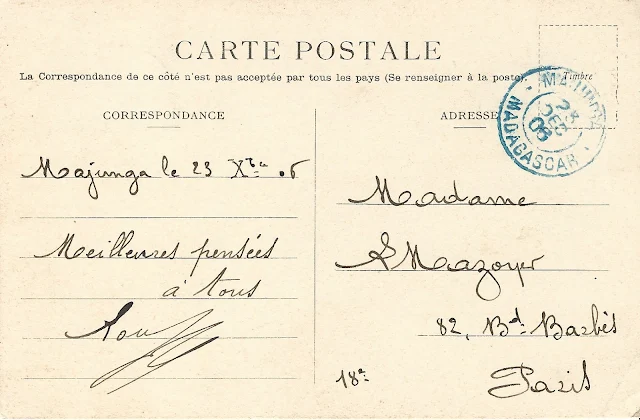 CARTE POSTALE
La Correspondance de ce côté n'est pas acceptée par tous les pays (Se renseigner à la poste).
Timbre
MAJUNGA
23 DEC 06
MADAGASCAR
CORRESPONDANCE
Majunga le 23 Xbre 06
Meilleures pensées
à tous
ADRESSE
Madame
Mazoyer
82, Bd Barbès
18e Paris